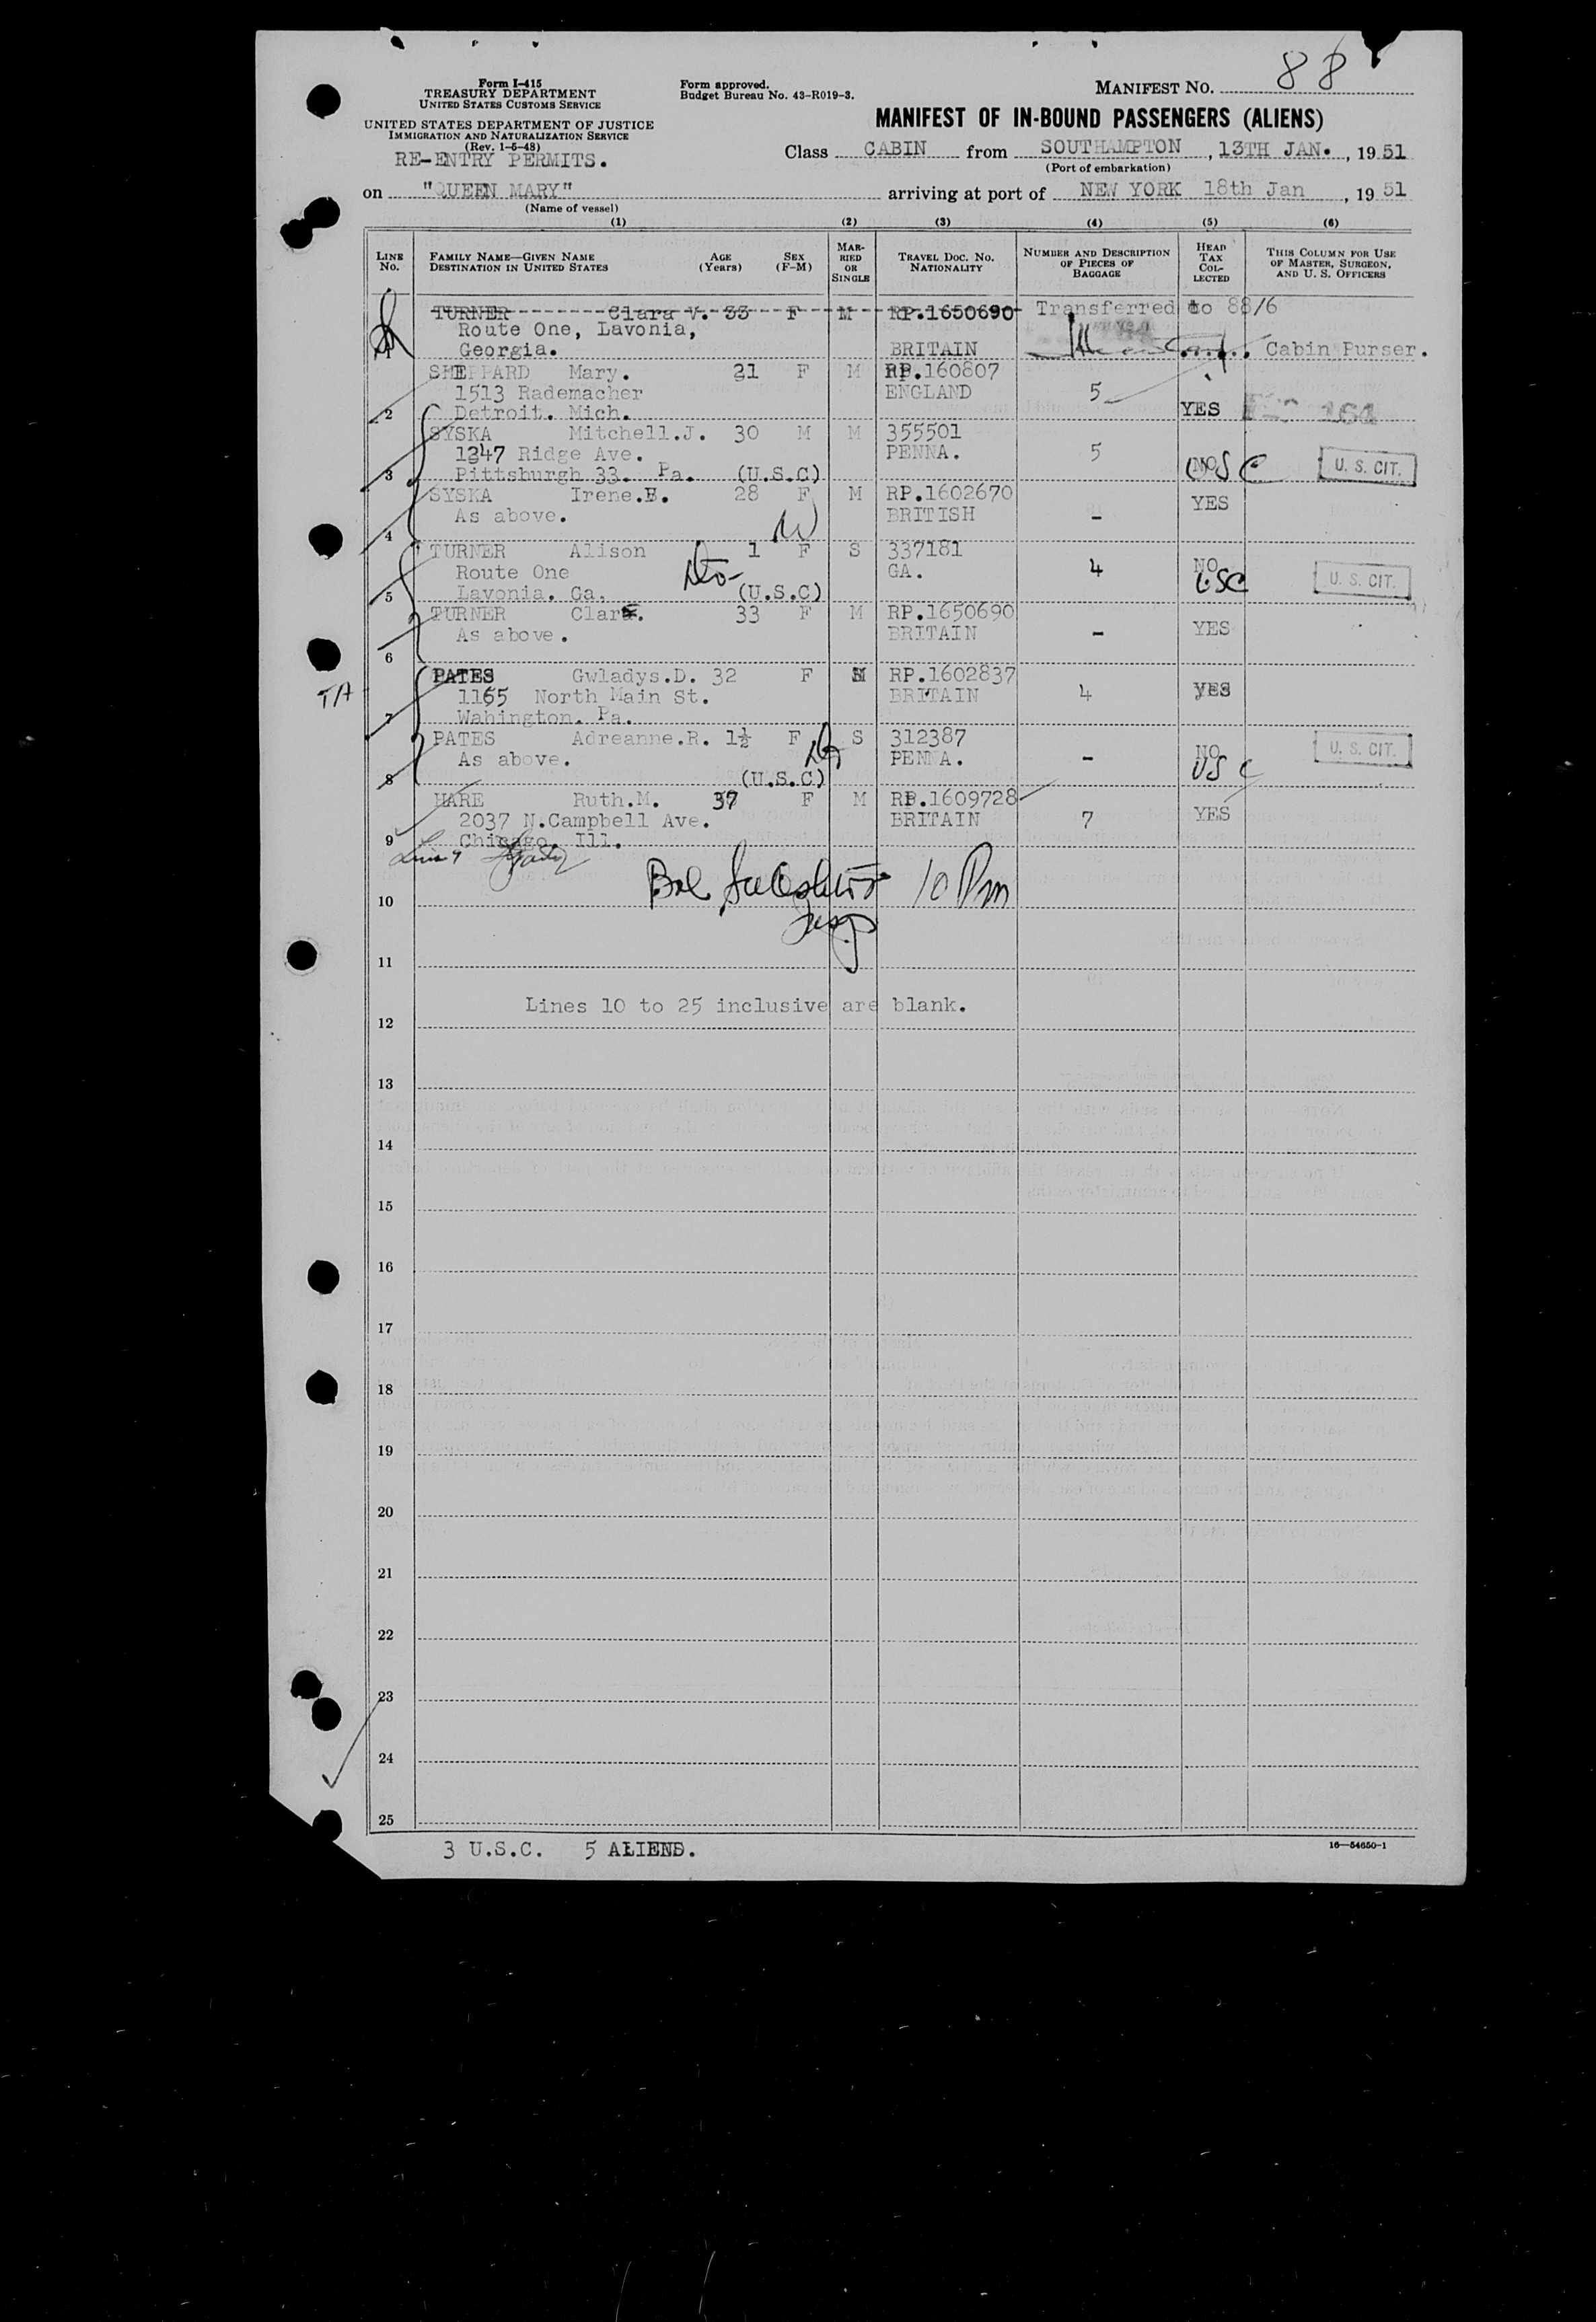 88
Form I-415
TREASURY DEPARTMENT
UNITED STATES CUSTOMS SERVICE
UNITED STATES DEPARTMENT OF JUSTICE
IMMIGRATION AND NATURALIZATION SERVICE
(Rev. 1-5-48)
RE-ENTRY PERMITS.
Form approved.
Budget Bureau No. 43-R019-3.
MANIFEST NO.
MANIFEST OF IN-BOUND PASSENGERS (ALIENS)
Class CABIN from SOUTHAMPTON, 13TH JAN., 1951
(Port of embarkation)
on "QUEEN MARY" arriving at port of NEW YORK 18th Jan, 1951
(Name of vessel)
(1) (2) (3) (4) (5) (6)
LINE NO.
FAMILY NAME—GIVEN NAME
DESTINATION IN UNITED STATES
AGE (Years)
SEX (F-M)
MARRIED OR SINGLE
TRAVEL DOC. NO. NATIONALITY
NUMBER AND DESCRIPTION OF PIECES OF BAGGAGE
HEAD TAX COLLECTED
THIS COLUMN FOR USE OF MASTER, SURGEON, AND U. S. OFFICERS
TURNER Clara V. 33 F M RP.1650690 Transferred to 88/6
Route One, Lavonia,
1 Georgia. BRITAIN Cabin Purser.
SHEPPARD Mary. 21 F M RP.160807
1513 Rademacher ENGLAND 5
2 Detroit. Mich. YES
SYSKA Mitchell.J. 30 M M 355501
1347 Ridge Ave. PENNA. 5
3 Pittsburgh 33. Pa. (U.S.C) NO USC U. S. CIT.
SYSKA Irene.E. 28 F M RP.1602670 YES
As above. BRITISH -
4
TURNER Alison 1 F S 337181
Route One GA. 4 NO
5 Lavonia. Ga. (U.S.C) USC U. S. CIT.
TURNER Clara. 33 F M RP.1650690
As above. BRITAIN - YES
6
T/A
PATES Gwladys.D. 32 F M RP.1602837
1165 North Main St. BRITAIN 4 YES
7 Wahington. Pa.
PATES Adreanne.R. 1½ F S 312387
As above. PENNA. - NO U. S. CIT.
8 (U.S.C) USC
HARE Ruth.M. 37 F M RP.1609728
2037 N.Campbell Ave. BRITAIN 7 YES
9 Chicago. Ill.
10 Pm
10
11
Lines 10 to 25 inclusive are blank.
12
13
14
15
16
17
18
19
20
21
22
23
24
25
3 U.S.C. 5 ALIENS.
16—54650-1